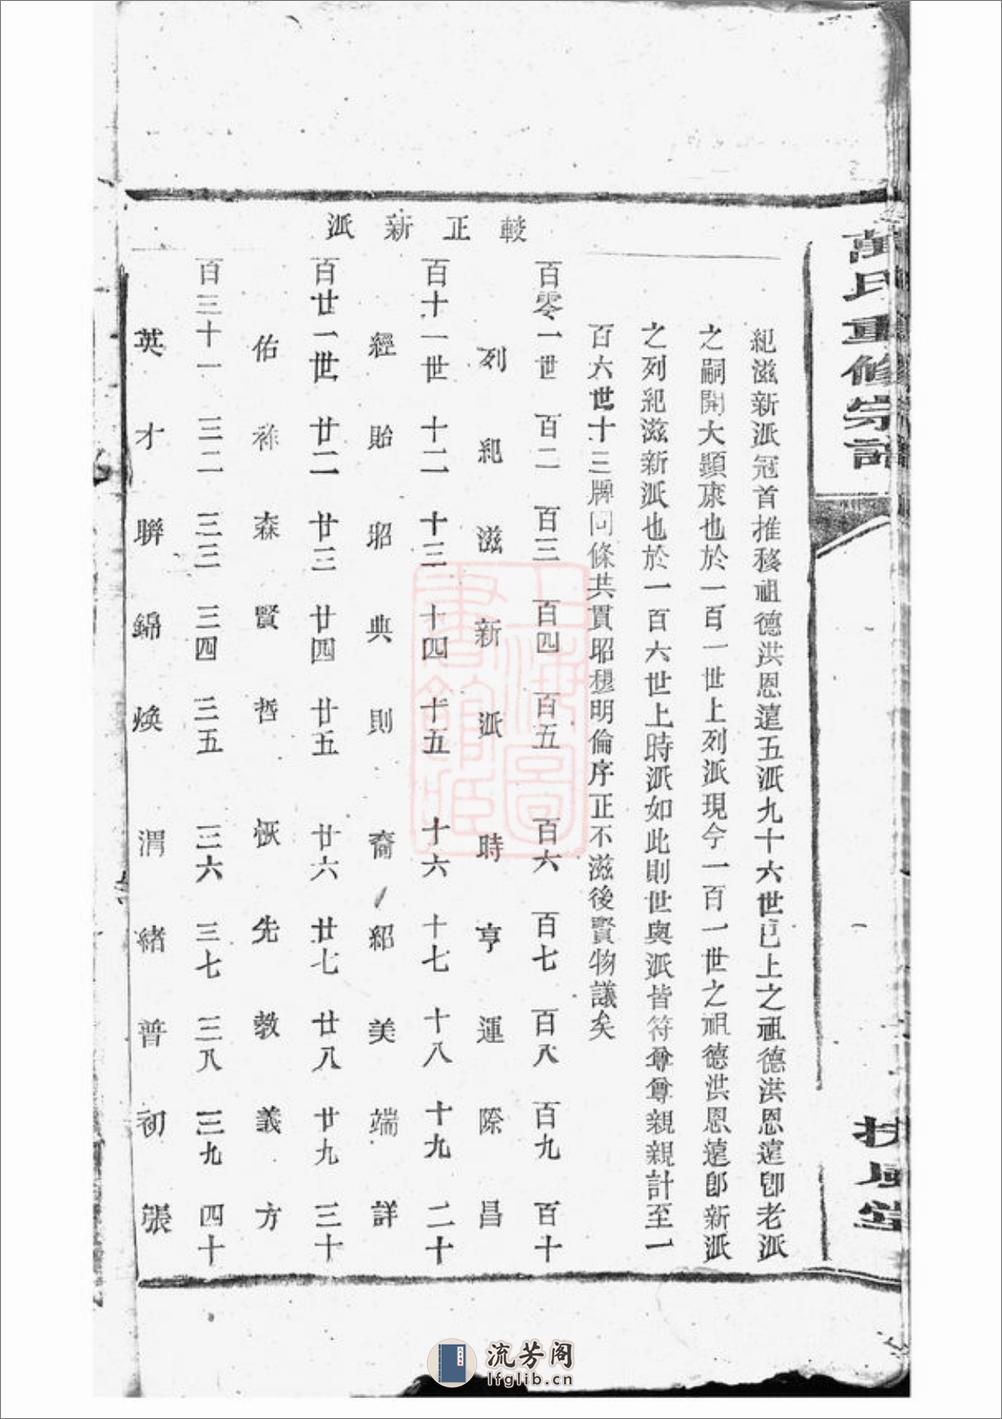 萬氏重修宗譜
扶風堂
紀滋新派冠首推移祖德洪恩遠五派九十六世已上之祖德洪恩遠卽老派
之嗣開大顯康也於一百一世上列派現今一百一世之祖德洪恩遠卽新派
之列紀滋新派也於一百六世上時派如此則世與派皆符尊尊親親計至一
百六世十三牌同條共貫昭穆明倫序正不滋後賢物議矣
較正新派
百零一世 百二 百三 百四 百五 百六 百七 百八 百九 百十
列 紀 滋 新 派 時 亨 運 際 昌
百十一世 十二 十三 十四 十五 十六 十七 十八 十九 二十
經 貽 昭 典 則 裔 紹 美 端 詳
百廿一世 廿二 廿三 廿四 廿五 廿六 廿七 廿八 廿九 三十
佑 祚 森 賢 哲 恢 先 教 義 方
百三十一 三二 三三 三四 三五 三六 三七 三八 三九 四十
英 才 聯 錦 煥 渭 緒 普 初 張
上海圖書館藏
流芳阁
lfglib.cn